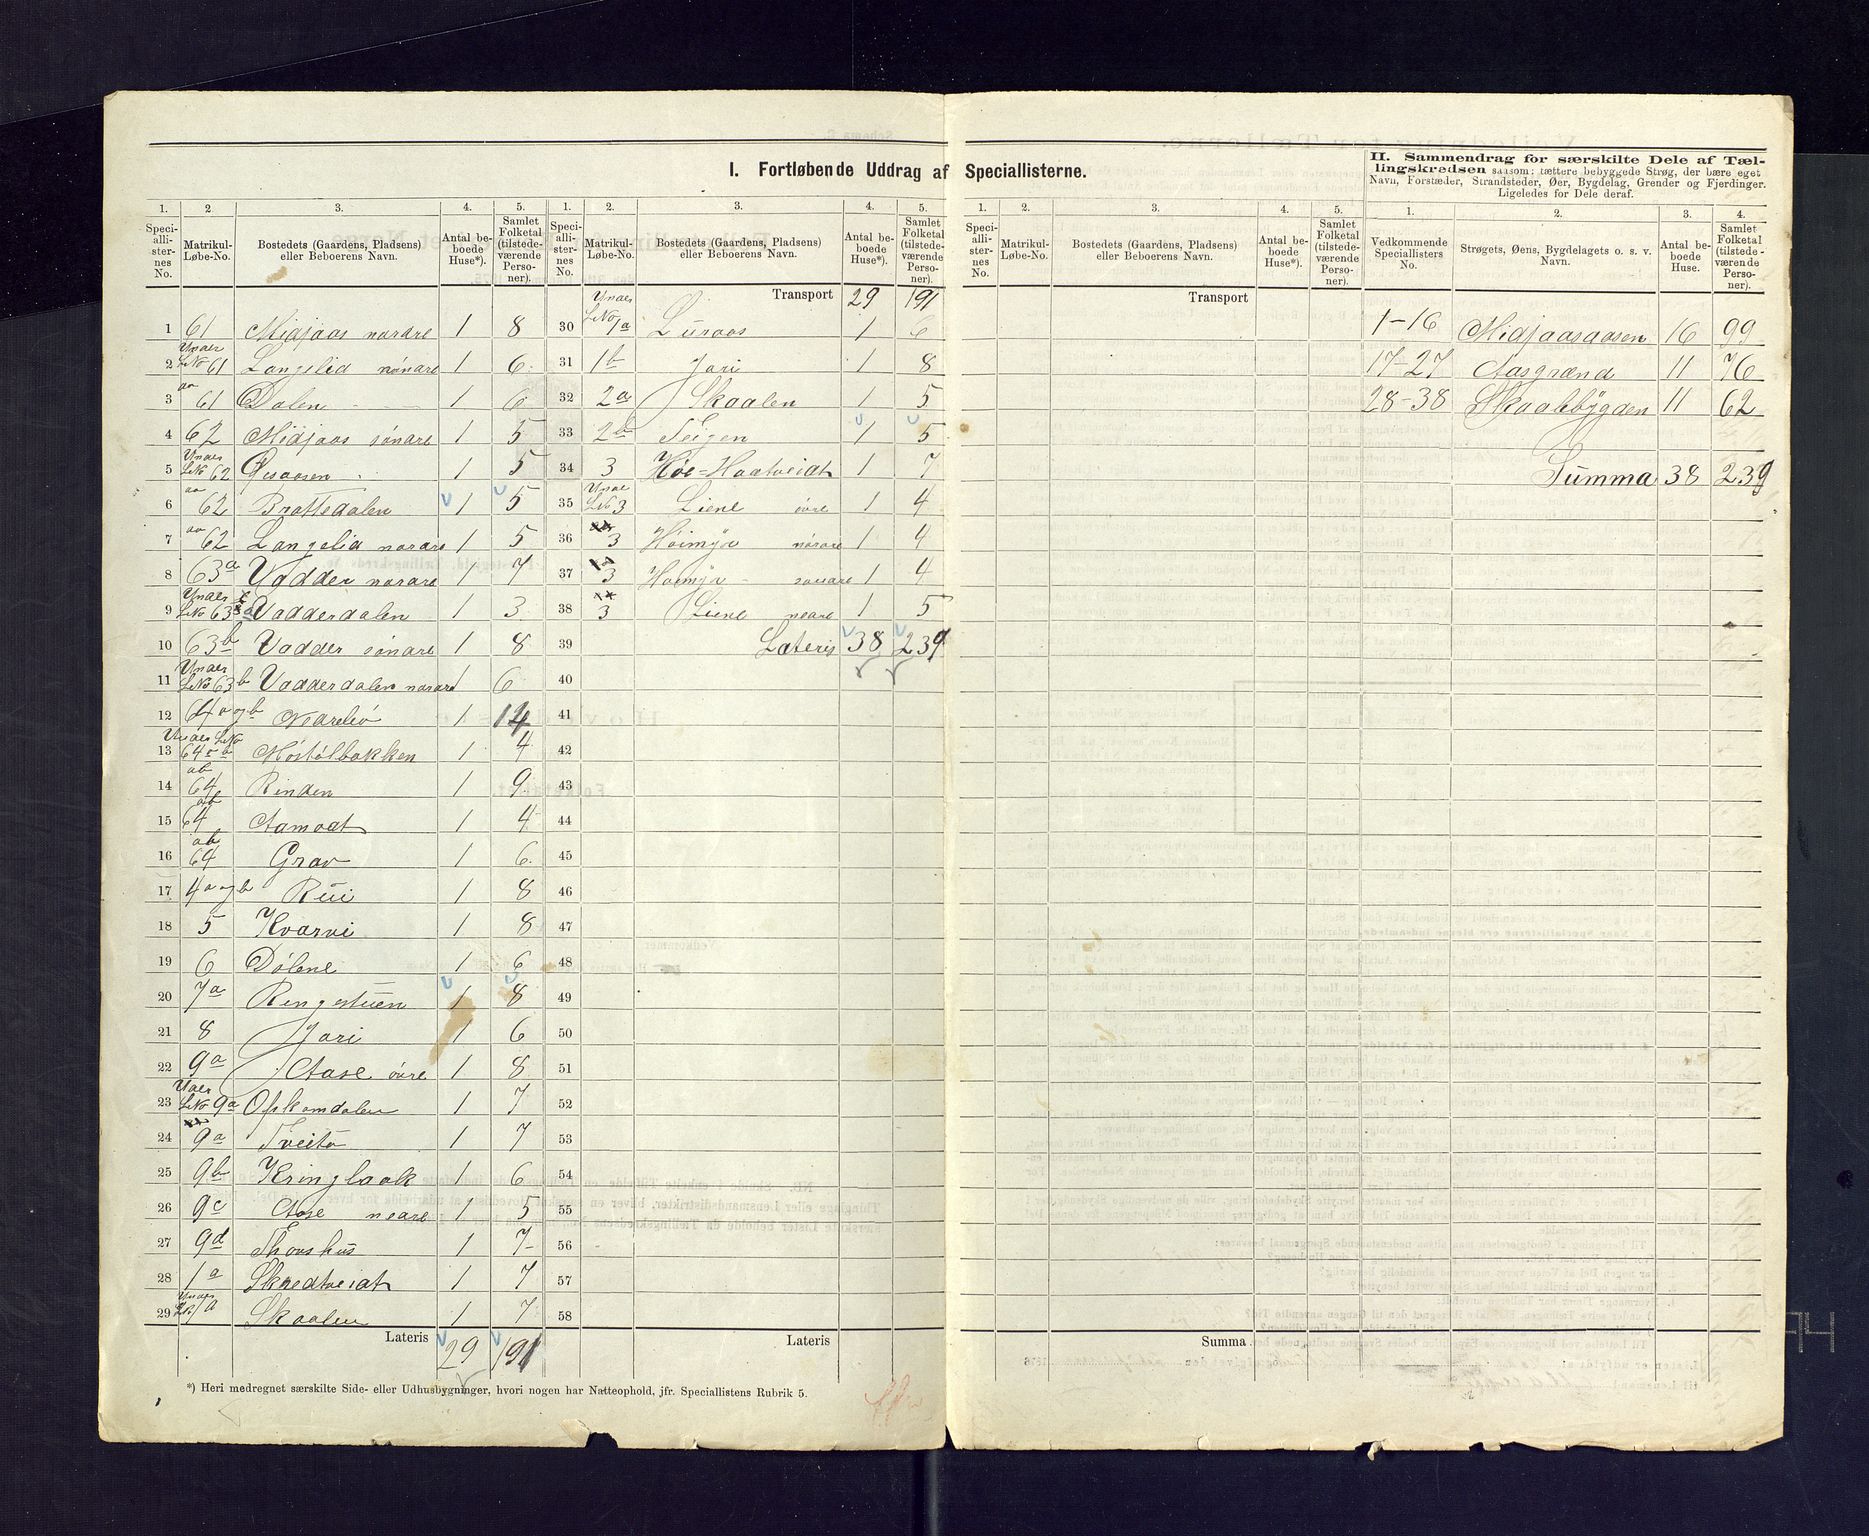 I. Fortløbende Uddrag af Speciallisterne.
II. Sammendrag for særskilte Dele af Tællingskredsen saasom: tættere bebyggede Strøg, der bære eget Navn, Forstæder, Strandsteder, Øer, Bygdelag, Grender og Fjerdinger. Ligeledes for Dele deraf.
1. 2 3. 4. 5. 1. 2. 3. 4. 5. 1. 2. 3. 4. 5. 1. 2. 3. 4.
Speciallisternes No. Matrikul-Løbe-No. Bostedets (Gaardens, Pladsens) eller Beboerens Navn. Antal beboede Huse*). Samlet Folketal (tilstedeværende Personer).
Speciallisternes No. Matrikul-Løbe-No. Bostedets (Gaardens, Pladsens) eller Beboerens Navn. Antal beboede Huse*). Samlet Folketal (tilstedeværende Personer).
Speciallisternes No. Matrikul-Løbe-No. Bostedets (Gaardens, Pladsens) eller Beboerens Navn. Antal beboede Huse*). Samlet Folketal (tilstedeværende Personer).
Vedkommende Speciallisters No. Strøgets, Øens, Bygdelagets o. s. v. Navn. Antal beboede Huse. Samlet Folketal (tilstedeværende Personer).
1 61 Midjaas nørdre 1 8
2 Under LNo 61 Langelid nørdre 1 6
3 61 Dalen 1 6
4 62 Midjaas søndre 1 5
5 Under LNo 62 Øisaasen 1 5
6 62 Brattedalen 1 5
7 62 Langelid nørdre 1 5
8 63a Vadder nørdre 1 7
9 Under LNo 63a Vadderdalen 1 3
10 63b Vadder søndre 1 8
11 Under LNo 63b Vadderdalen nørdre 1 6
12 64 a og b Marelid 1 14
13 Under LNo 64 a b Møstølbakken 1 4
14 ab 64 Rinden 1 9
15 ab 64 Aamodt 1 4
16 ab 64 Grav 1 6
17 4 a og b Rui 1 8
18 5 Kvarvi 1 8
19 6 Dølene 1 6
20 7a Ringestuen 1 8
21 8 Jari 1 6
22 9a Aase øvre 1 8
23 Under LNo 9a Ofskomdalen 1 7
24 9a Tveito 1 7
25 9b Kringlaak 1 6
26 9c Aase nedre 1 5
27 9d Thorshus 1 7
28 1a Skredtveidt 1 7
29 Under LNo 1a Skaalen 1 7
Lateris 29 191
Transport 29 191
30 Under LNo 1a Luraas 1 6
31 1b Jari 1 8
32 2a Skaalen 1 5
33 2b Teigen 1 5
34 3 Høe-Haatveidt 1 7
35 Under LNo 3 Liene øvre 1 4
36 3 Høimyr nørdre 1 4
37 3 Høimyr søndre 1 4
38 3 Liene nedre 1 5
39 Lateris 38 239
40
41
42
43
44
45
46
47
48
49
50
51
52
53
54
55
56
57
58
Lateris
Transport
Summa
1-16 Midjaasaasen 16 99
17-27 Aasgrænd 11 76
28-38 Skaalebygden 11 62
Summa 38 239
*) Heri medregnet særskilte Side- eller Udhusbygninger, hvori nogen har Natteophold, jfr. Speciallistens Rubrik 5.